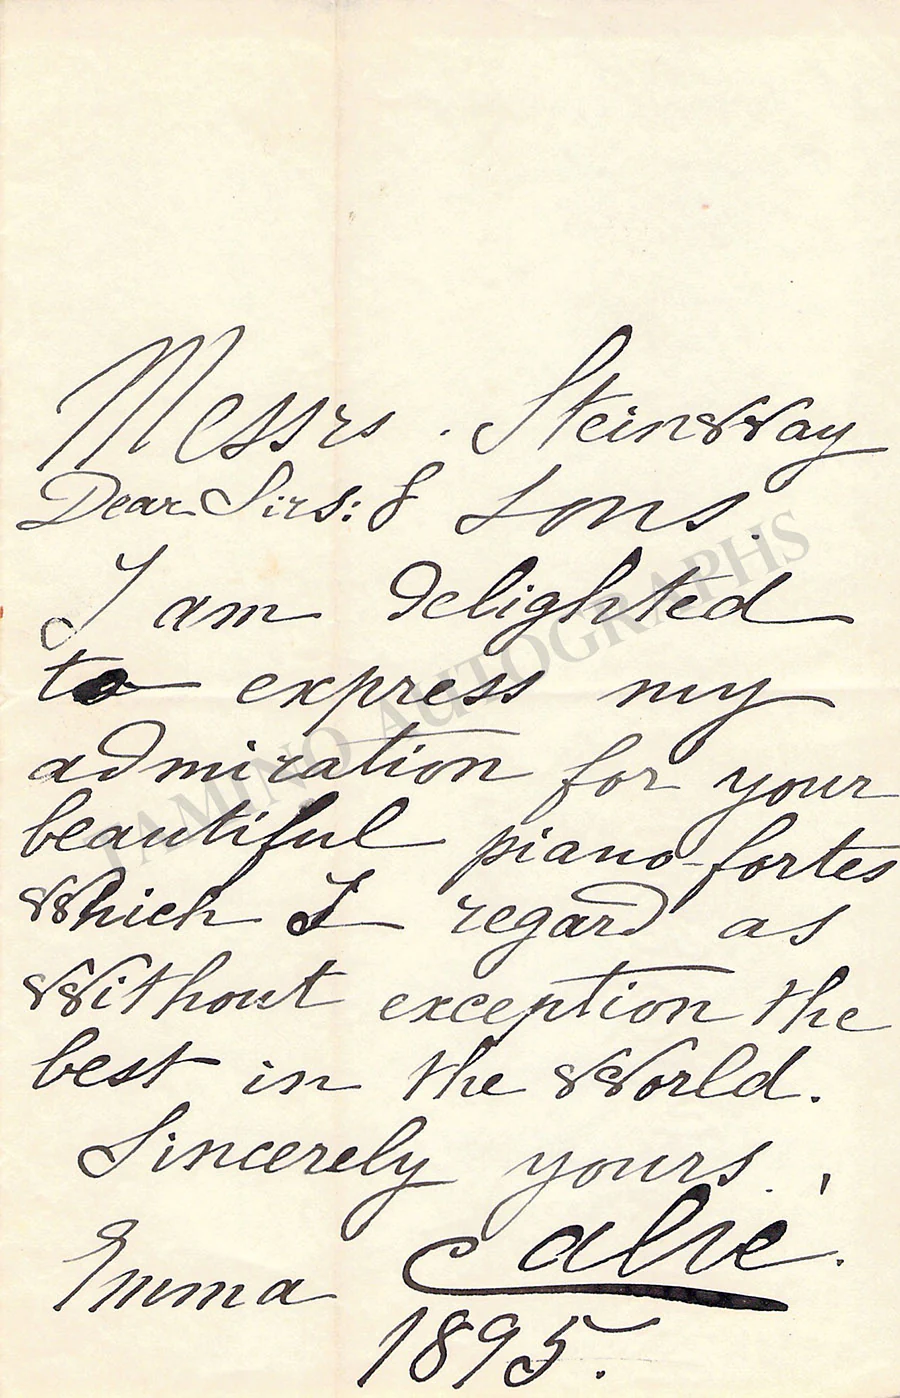 Messrs. Steinway
Dear Sirs: & Sons.
I am delighted
to express my
admiration for your
beautiful piano-fortes
which I regard as
without exception the
best in the world.
Sincerely yours.
Emma Calvé.
1895.
TAMINO AUTOGRAPHS